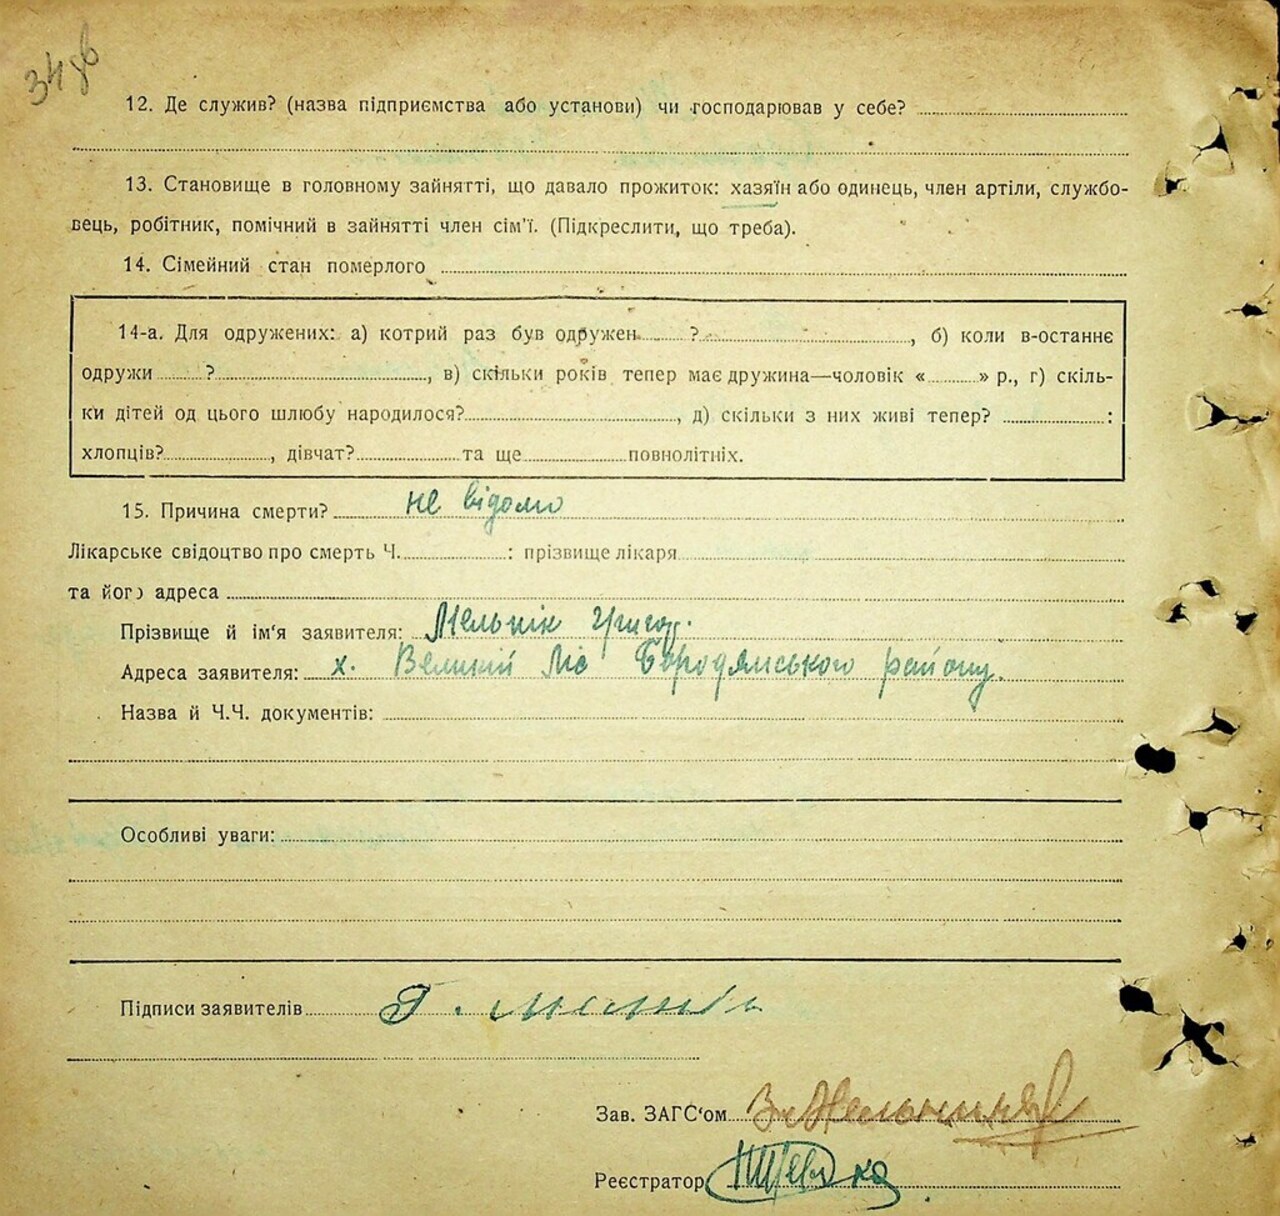 34 зв
12. Де служив? (назва підприємства або установи) чи господарював у себе?
13. Становище в головному зайнятті, що давало прожиток: хазяїн або одинець, член артіли, службо-
вець, робітник, помічний в зайнятті член сім'ї. (Підкреслити, що треба).
14. Сімейний стан померлого
14-а. Для одружених: а) котрий раз був одружен ?, б) коли в-останнє
одружи ?, в) скільки років тепер має дружина—чоловік « » р., г) скіль-
ки дітей од цього шлюбу народилося?, д) скільки з них живі тепер? :
хлопців?, дівчат? та ще повнолітніх.
15. Причина смерти? не відомо
Лікарське свідоцтво про смерть Ч. : прізвище лікаря
та його адреса
Прізвище й ім'я заявителя: Мельнік Григор.
Адреса заявителя: х. Великий Ліс Бородянського району.
Назва й Ч.Ч. документів:
Особливі уваги:
Підписи заявителів Г. Мелнік
Зав. ЗАГС'ом
Реєстратор